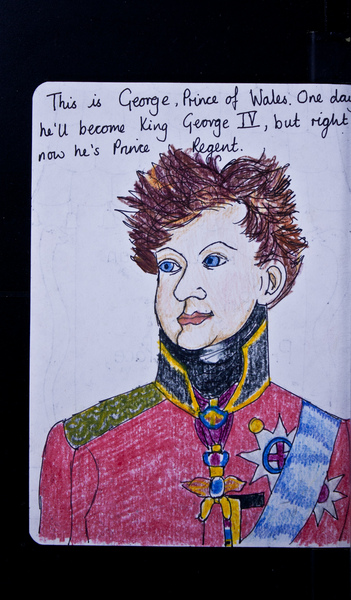 This is George, Prince of Wales. One day
he'll become King George IV, but right
now he's Prince Regent.